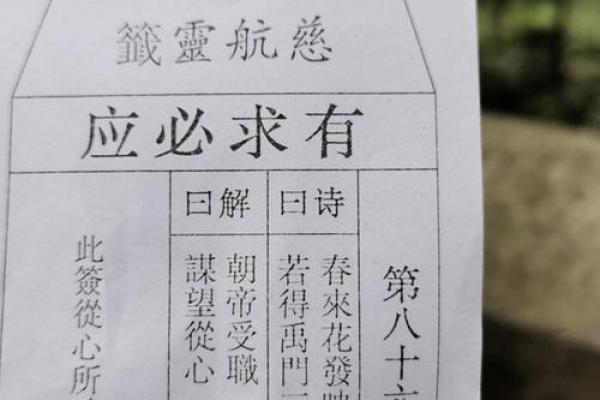 慈航靈籤
有求必应
第八十六
诗曰
春來花發映
若得禹門三
解曰
朝帝受職
謀望從心
此簽從心所